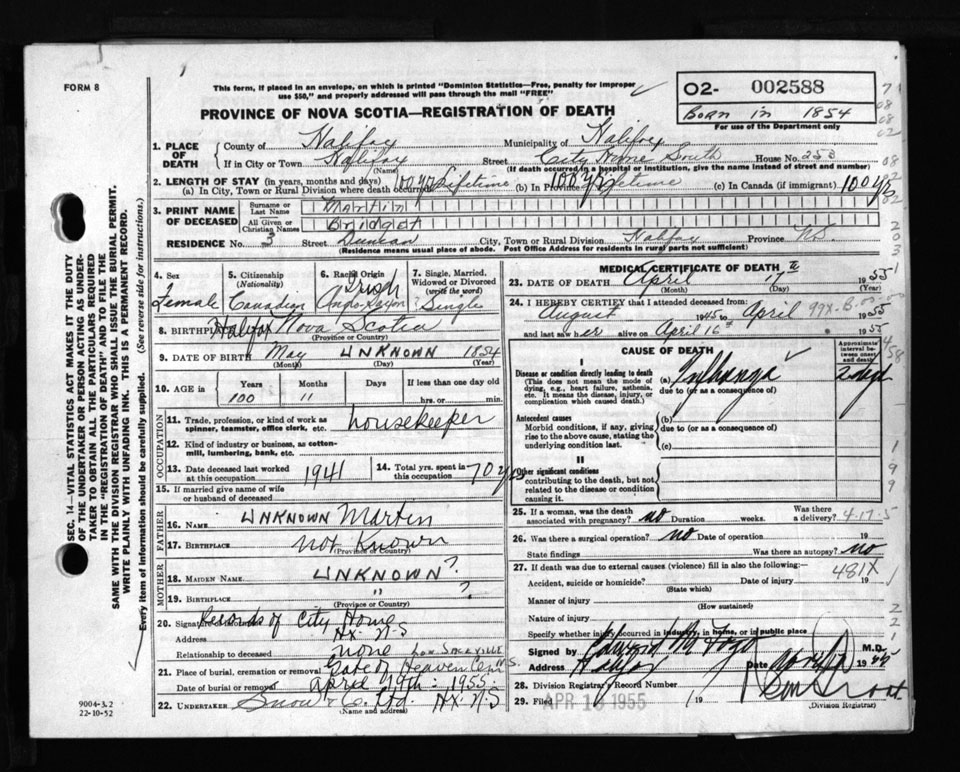 FORM 8
This form, if placed in an envelope, on which is printed "Dominion Statistics—Free, penalty for improper
use $50," and properly addressed will pass through the mail "FREE"
PROVINCE OF NOVA SCOTIA—REGISTRATION OF DEATH
O2- 002588
Born in 1854
For use of the Department only
1. PLACE OF DEATH
County of Halifax Municipality of Halifax
If in City or Town Halifax Street City Home South House No. 253
(Name) (If death occurred in hospital or institution, give the name instead of street and number)
2. LENGTH OF STAY (in years, months and days)
(a) In City, Town or Rural Division where death occurred 100 yrs Lifetime (b) In Province 100 yrs Lifetime (c) In Canada (if immigrant) 100 yrs
3. PRINT NAME OF DECEASED
Surname or Last Name Martin
All Given or Christian Names Bridget
RESIDENCE No. 3 Street Duncan City, Town or Rural Division Halifax Province N.S.
(Residence means usual place of abode. Post Office Address for residents in rural parts not sufficient)
4. Sex Female
5. Citizenship (Nationality) Canadian
6. Racial Origin Irish Anglo-Saxon
7. Single, Married, Widowed or Divorced (write the word) Single
8. BIRTHPLACE Halifax Nova Scotia
(Province or Country)
9. DATE OF BIRTH May UNKNOWN 1854
(Month) (Day) (Year)
10. AGE in Years 100 Months 11 Days If less than one day old hrs. or min.
OCCUPATION
11. Trade, profession, or kind of work as spinner, teamster, office clerk, etc. housekeeper
12. Kind of industry or business, as cotton-mill, lumbering, bank, etc.
13. Date deceased last worked at this occupation 1941
14. Total yrs. spent in this occupation 70 yrs
15. If married give name of wife or husband of deceased
FATHER
16. NAME UNKNOWN Martin
17. BIRTHPLACE not Known
(Province or Country)
MOTHER
18. MAIDEN NAME UNKNOWN ?
19. BIRTHPLACE " ?
(Province or Country)
20. Signature of Informant Records of City Home
Address Hx. N-S
Relationship to deceased none
21. Place of burial, cremation or removal Gate of Heaven Cem Low. SACKVILLE N.S.
Date of burial or removal April 19th. 1955.
22. UNDERTAKER Snow & Co. Ltd. Hx. N-S
(Name and Address)
MEDICAL CERTIFICATE OF DEATH
23. DATE OF DEATH April 17th 1955
(Month) (Day)
24. I HEREBY CERTIFY that I attended deceased from:
August 1945 to April 1955
and last saw her alive on April 16th 1955
CAUSE OF DEATH
Approximate interval between onset and death
I
Disease or condition directly leading to death
(This does not mean the mode of dying, e.g., heart failure, asthenia, etc. It means the disease, injury, or complication which caused death.)
(a)
due to (or as a consequence of)
2 days
Antecedent causes
Morbid conditions, if any, giving rise to the above cause, stating the underlying condition last.
(b)
due to (or as a consequence of)
(c)
II
Other significant conditions contributing to the death, but not related to the disease or condition causing it.
25. If a woman, was the death associated with pregnancy? no Duration weeks. Was there a delivery? 4-17-5
26. Was there a surgical operation? no Date of operation 19
State findings Was there an autopsy? no
27. If death was due to external causes (violence) fill in also the following:—
481X
Accident, suicide or homicide? Date of injury 19
(State which)
Manner of injury
(How sustained)
Nature of injury
Specify whether injury occurred in industry, in home, or in public place
Signed by M.D.
Address Halifax Date 1955
28. Division Registrar's Record Number
29. Filed APR 18 1955 19
(Division Registrar)
SEC. 14—VITAL STATISTICS ACT MAKES IT THE DUTY
OF THE UNDERTAKER OR PERSON ACTING AS UNDERTAKER TO OBTAIN ALL THE PARTICULARS REQUIRED
IN THE "REGISTRATION OF DEATH" AND TO FILE THE
SAME WITH THE DIVISION REGISTRAR WHO SHALL ISSUE THE BURIAL PERMIT.
WRITE PLAINLY WITH UNFADING INK. THIS IS A PERMANENT RECORD.
Every item of information should be carefully supplied. (See reverse side for instructions.)
9004-3.2
22-10-52